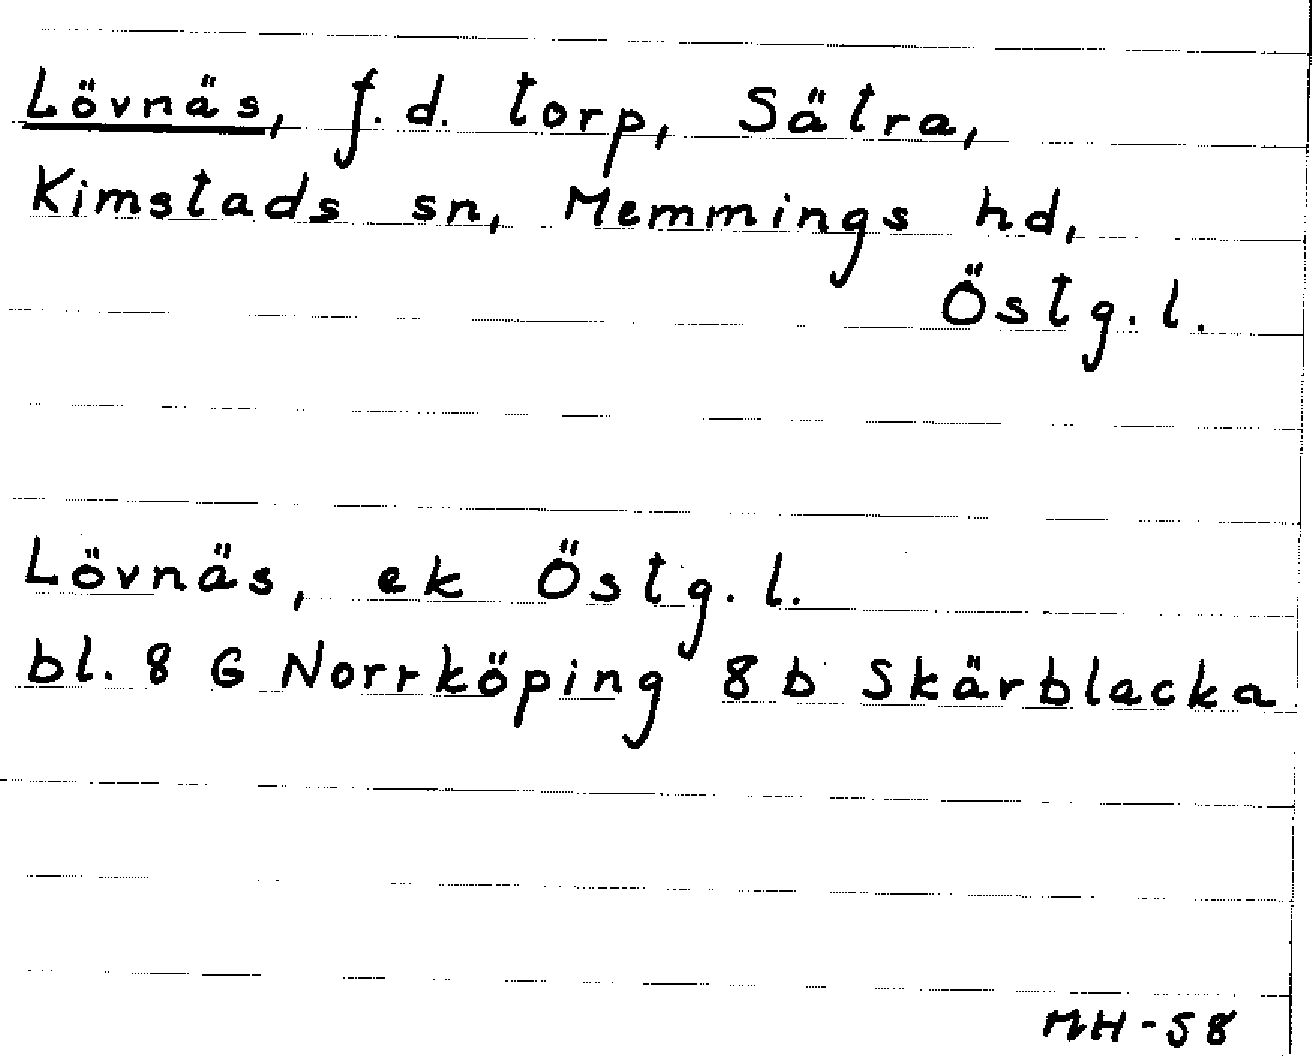 Lövnäs, f.d. torp, Sätra,
Kimstads sn, Memmings hd,
Östg.l.
Lövnäs, ek Östg.l.
bl. 8 G Norrköping 8 b Skärblacka
MH-58